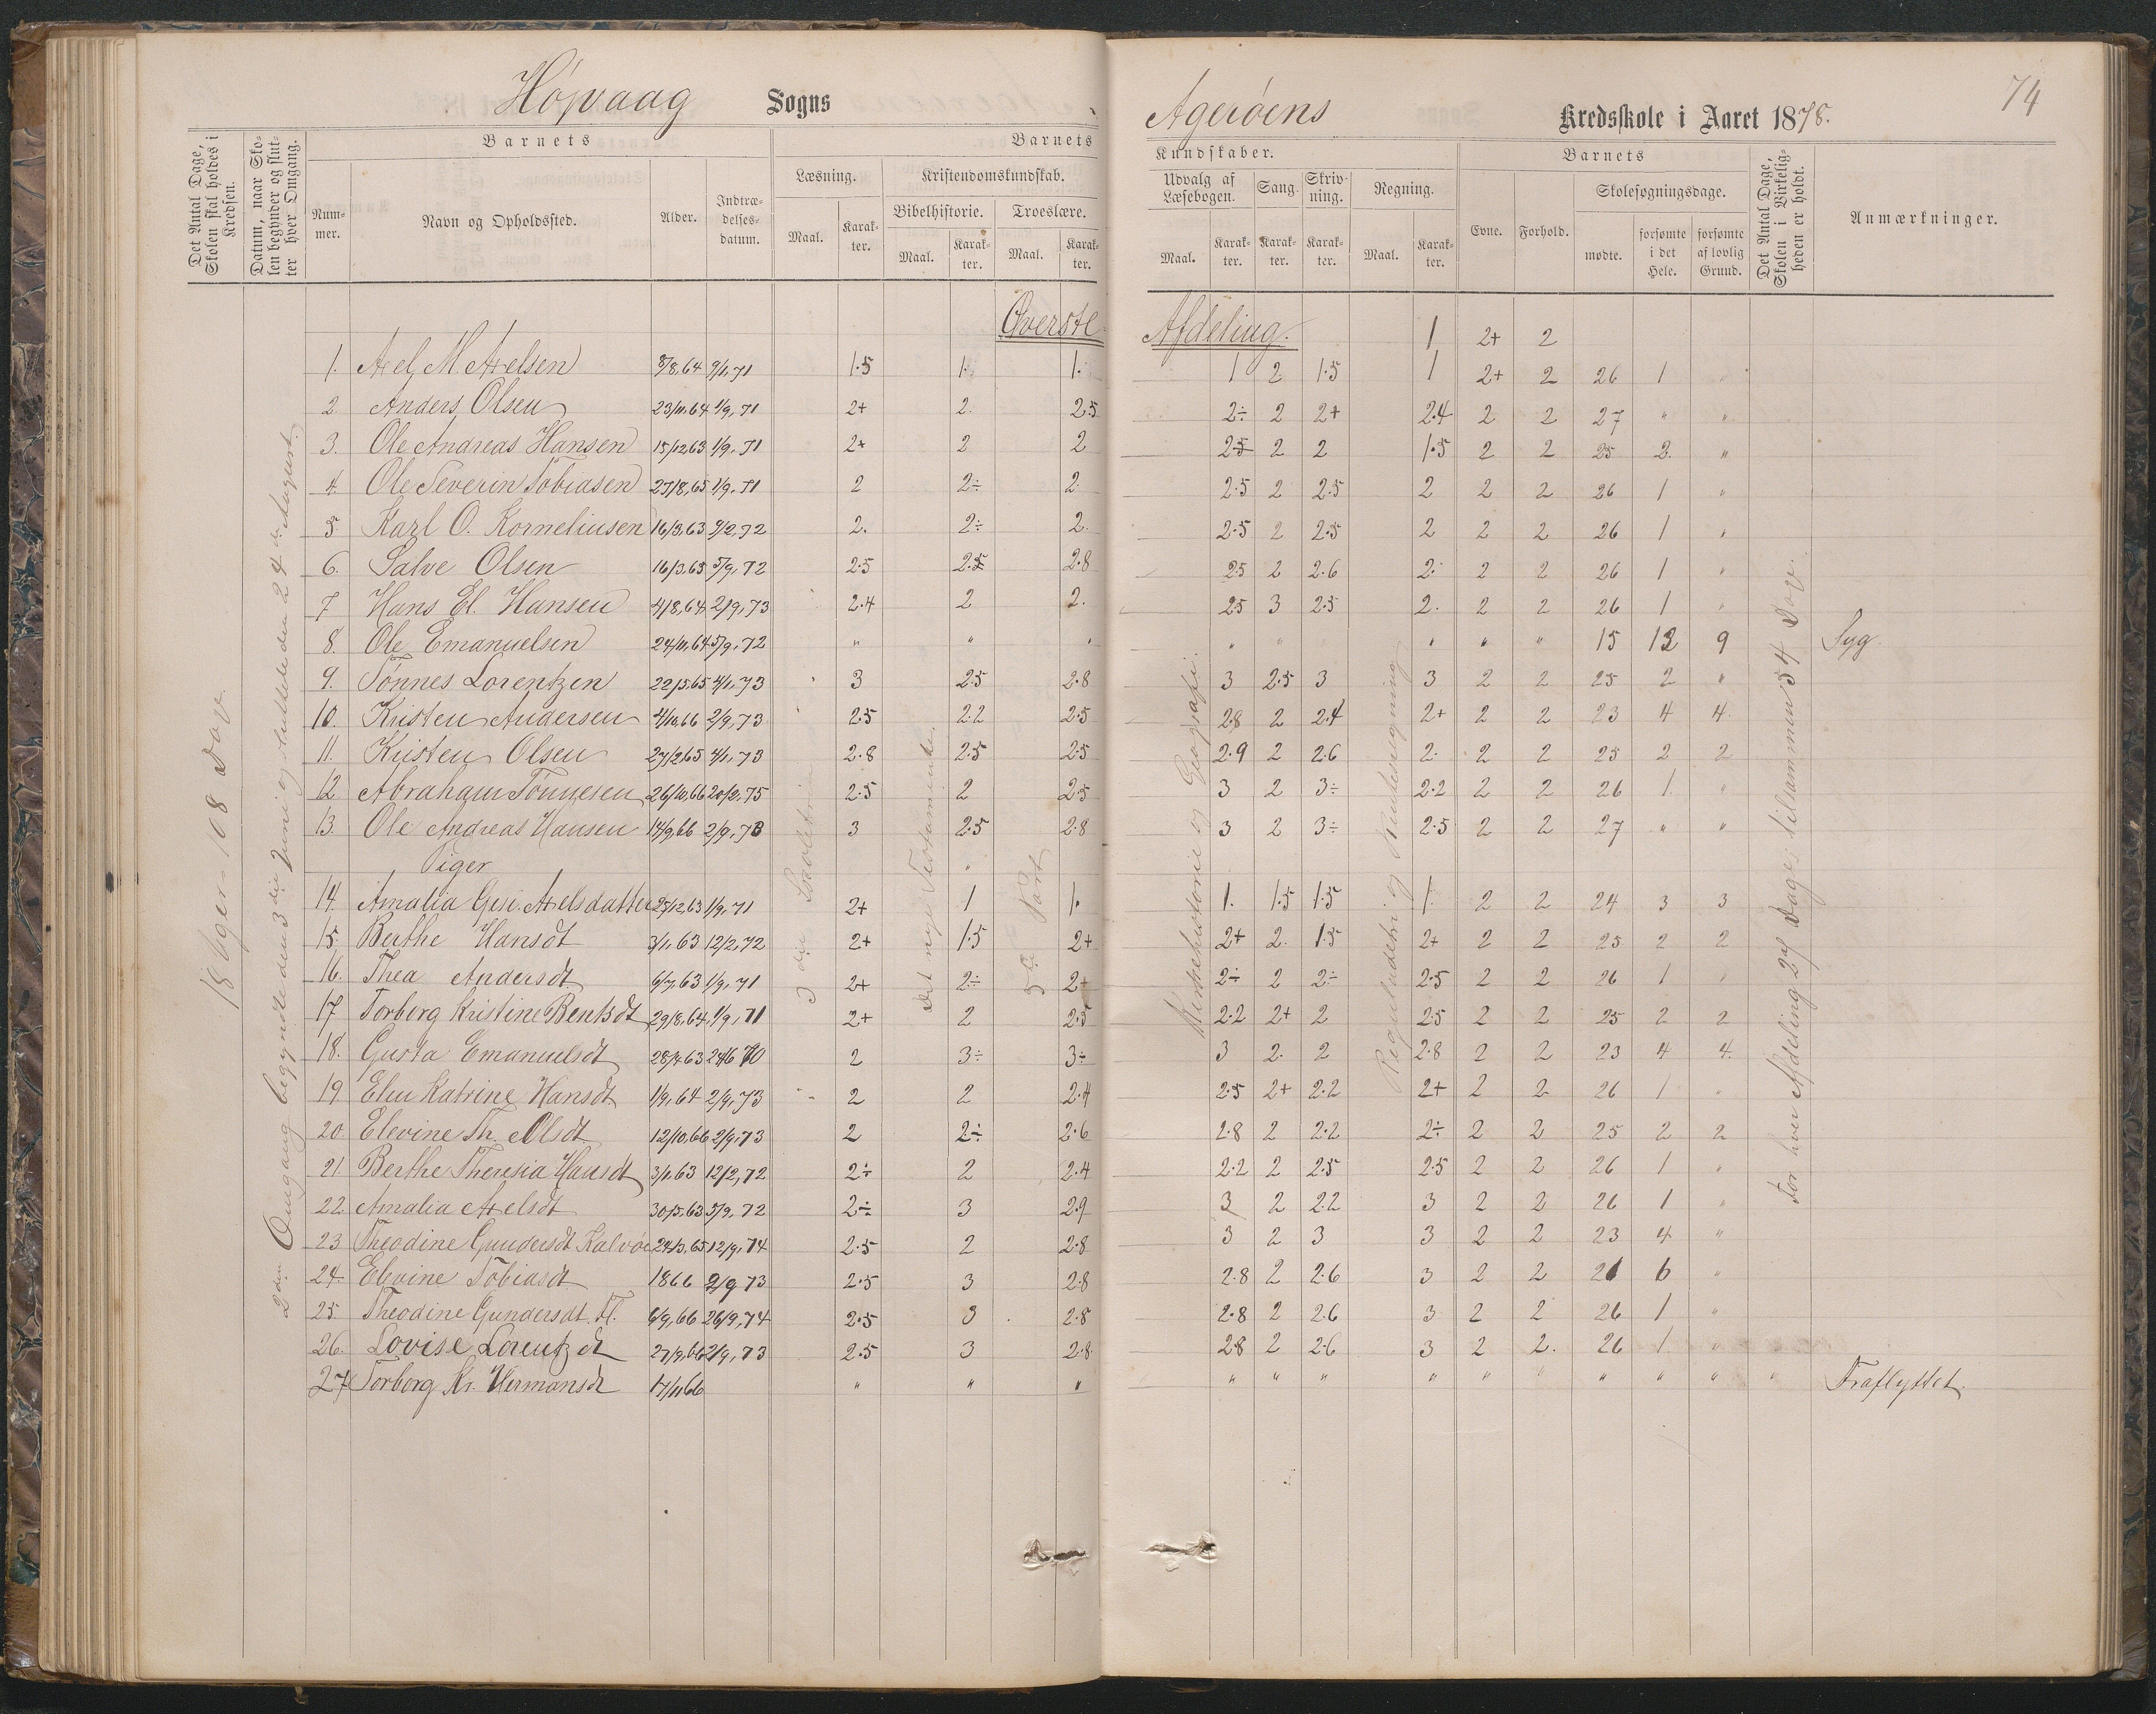 Høivaag Sogns
Agerøens Kredsskole i Aaret 1878.
74
Det Antal Dage, Skolen skal holdes i Kredsen.
Datum, naar Skolen begynder og slutter hver Omgang.
Barnets
Nummer.
Navn og Opholdssted.
Alder.
Indtrædelsesdatum.
Barnets Kundskaber.
Læsning.
Maal.
Karakter.
Kristendomskundskab.
Bibelhistorie.
Maal.
Karakter.
Troeslære.
Maal.
Karakter.
Udvalg af Læsebogen.
Maal.
Karakter.
Sang.
Karakter.
Skrivning.
Karakter.
Regning.
Maal.
Karakter.
Barnets
Evne.
Forhold.
Skolesøgningsdage.
mødte.
forsømte i det Hele.
forsømte af lovlig Grund.
Det Antal Dage, Skolen i Virkeligheden er holdt.
Anmærkninger.
18 Uger = 108 Dage
2den Omgang begyndte den 3die Juni og sluttede den 24de August.
3die Læsetrin
Det nye Testamente.
5te Part
Kirkehistorie og Geografi.
Reguladetri og Rentesregning
For hver Afdeling 27 Dage; tilsammen 54 Dage.
Øverste Afdeling.
1 2+ 2
1. Axel M. Axelsen 8/8,64 9/1,71 1.5 1. 1. 1 2 1.5 1 2+ 2 26 1 "
2 Anders Olsen 23/11,64 1/9,71 2+ 2. 2.5 2÷ 2 2+ 2.4 2 2 27 " "
3. Ole Andreas Hansen 15/12,63 1/9,71 2+ 2 2 2.5 2 2 1.5 2 2 25 2. "
4. Ole Severin Tobiasen 27/8,65 1/9,71 2 2÷ 2. 2.5 2 2.5 2 2 2 26 1 "
5. Karl O. Korneliusen 16/3,63 9/2,72 2. 2÷ 2. 2.5 2 2.5 2 2 2 26 1 "
6. Salve Olsen 16/3,65 5/9,72 2.5 2.5 2.8 2.5 2 2.6 2. 2 2 26 1 "
7 Hans El. Hansen 4/8,64 2/9,73 2.4 2 2. 2.5 3 2.5 2. 2 2 26 1 "
8. Ole Emanuelsen 24/11,64 5/9,72 " " " " " " " " 15 12 9 Syg.
9. Tönnes Lorentzen 22/5,65 4/1,73 3 2.5 2.8 3 2.5 3 3 2 2 25 2 "
10. Kristen Andersen 4/10,66 2/9,73 2.5 2.2 2.5 2.8 2 2.4 2+ 2 2 23 4 4.
11. Kristen Olsen 27/2,65 4/1,73 2.8 2.5 2.5 2.9 2 2.6 2. 2 2 25 2 2
12 Abraham Tönnesen 26/10,66 20/2,75 2.5 2 2.5 3 2 3÷ 2.2 2 2 26 1. "
13. Ole Andreas Hansen 14/9,66 2/9,73 3 2.5 2.8 3 2 3÷ 2.5 2 2 27 " "
Piger "
14. Amalia Gesi. Axelsdatter 25/12,63 1/9,71 2+ 1 1. 1. 1.5 1.5 1. 2 2 24 3 3
15. Berthe Hansdt 3/1,63 12/2,72 2+ 1.5 2+ 2+ 2. 1.5 2+ 2 2 25 2 2
16. Thea Andersdt. 6/7,63 1/9,71 2+ 2÷ 2+ 2÷ 2 2÷ 2.5 2 2 26 1 "
17 Torborg Kristine Bentsdt 29/8,64 1/9,71 2+ 2 2.5 2.2 2+ 2 2.5 2 2 25 2 2
18. Gusta Emanuelsdt 28/4,63 24/6 70 2 3÷ 3÷ 3 2. 2 2.8 2 2 23 4 4.
19. Elen Katrine Hansdt 1/9,64 2/9,73 2 2 2.4 2.5 2+ 2.2 2+ 2 2 26 1 "
20. Elevine Th. Olsdt 12/10,66 2/9,73 2 2÷ 2.6 2.8 2 2.2 2÷ 2 2 25 2 2
21. Berthe Theresia Hansdt 3/1,63 12/2,72 2÷ 2 2.4 2.2 2 2.5 2.5 2 2 26 1 "
22. Amalia Axelsdt 30/5,63 5/9,72 2÷ 3 2.9 3 2 2.2 3 2 2 26 1 "
23 Theodine Gundersdt Kalvøe 24/3,65 12/9,74 2.5 2 2.8 3 2 3 3 2 2 23 4 "
24. Elevine Tobiasdt 1866 2/9 73 2.5 3 2.8 2.8 2 2.6 3 2 2 21 6 "
25. Theodine Gundersdt. Fl. 6/9,66 26/9,74 2.5 3 2.8 2.8 2 2.6 3 2 2 26 1 "
26. Lovise Lorentzdt 27/9,66 2/9,73 2.5 3 2.8 2.8 2 2.6 3 2 2. 26 1. "
27 Torborg Kr. Hermansdt 17/11,66 " " " " " " " " " " " " " Fraflyttet.